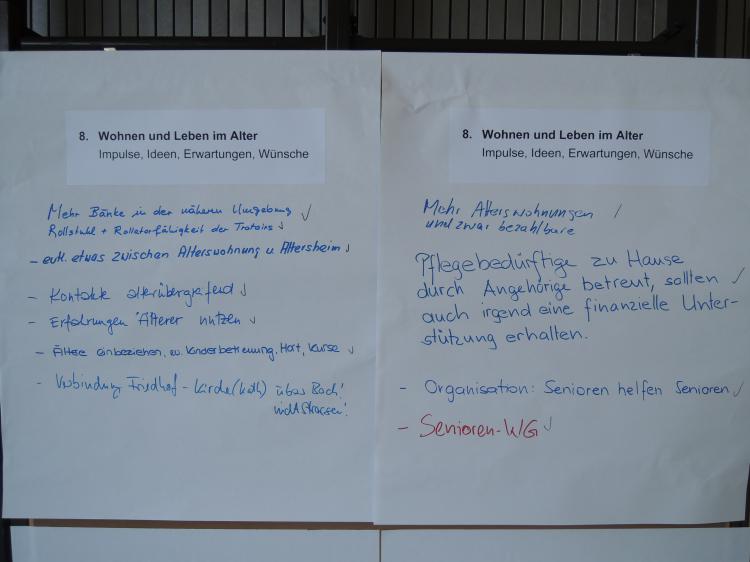 8. Wohnen und Leben im Alter
Impulse, Ideen, Erwartungen, Wünsche
Mehr Bänke in der näheren Umgebung ✓
Rollstuhl + Rollatorfähigkeit der Trotoirs ✓
- evtl. etwas zwischen Alterswohnung u. Altersheim ✓
- Kontakte altersübergreifend ✓
- Erfahrungen Älterer nutzen ✓
- Ältere einbeziehen, Kinderbetreuung, Hort, Kurse ✓
- Verbindung Friedhof - Kirche (kath) über Bach!
nicht Strassen!
8. Wohnen und Leben im Alter
Impulse, Ideen, Erwartungen, Wünsche
Mehr Alterswohnungen
und zwar bezahlbare
Pflegebedürftige zu Hause
durch Angehörige betreut, sollten ✓
auch irgend eine finanzielle Unter-
stützung erhalten.
- Organisation: Senioren helfen Senioren ✓
- Senioren-WG ✓